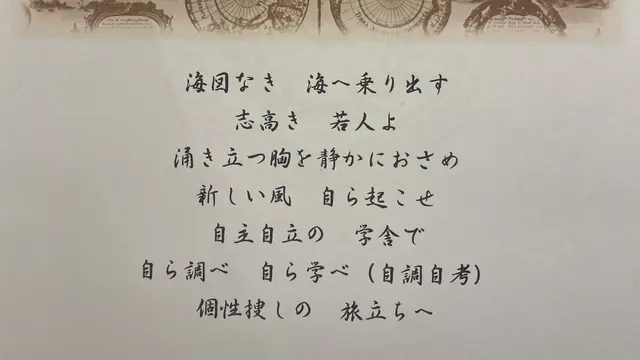 海図なき　海へ乗り出す
志高き　若人よ
涌き立つ胸を静かにおさめ
新しい風　自ら起こせ
自主自立の　学舎で
自ら調べ　自ら学べ（自調自考）
個性捜しの　旅立ちへ